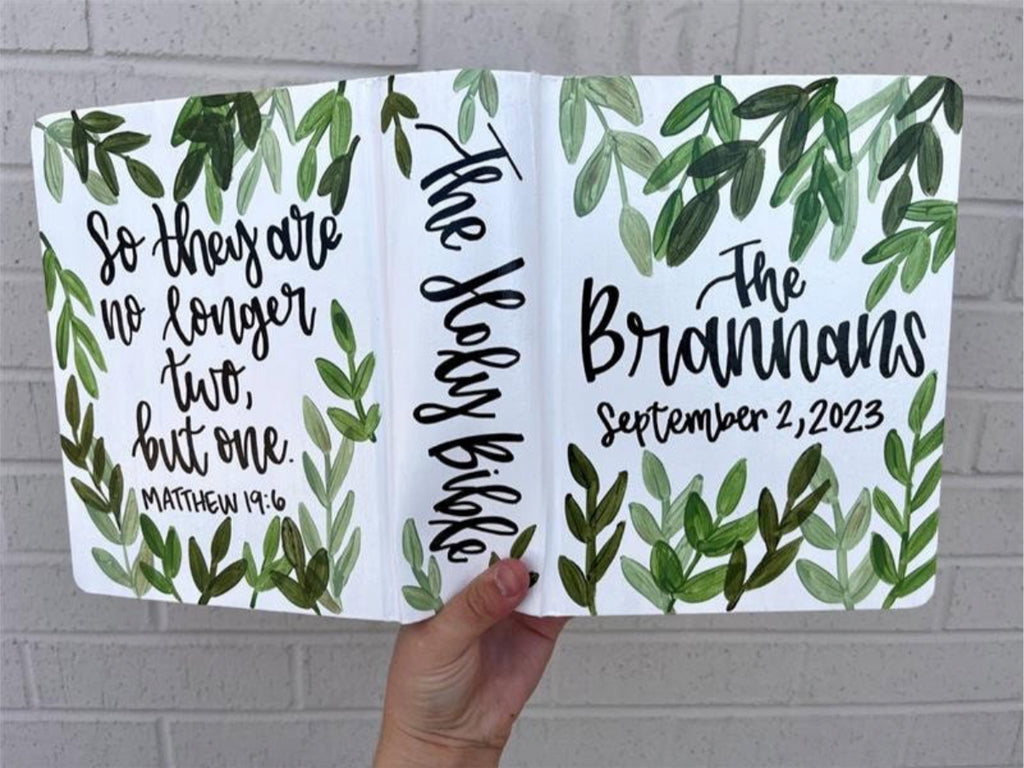 So they are
no longer
two,
but one.
MATTHEW 19:6
The Holy Bible
The
Brannans
September 2, 2023